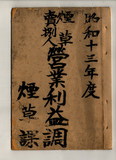 昭和十三年度
煙草
賣捌人營業利益調
煙草課